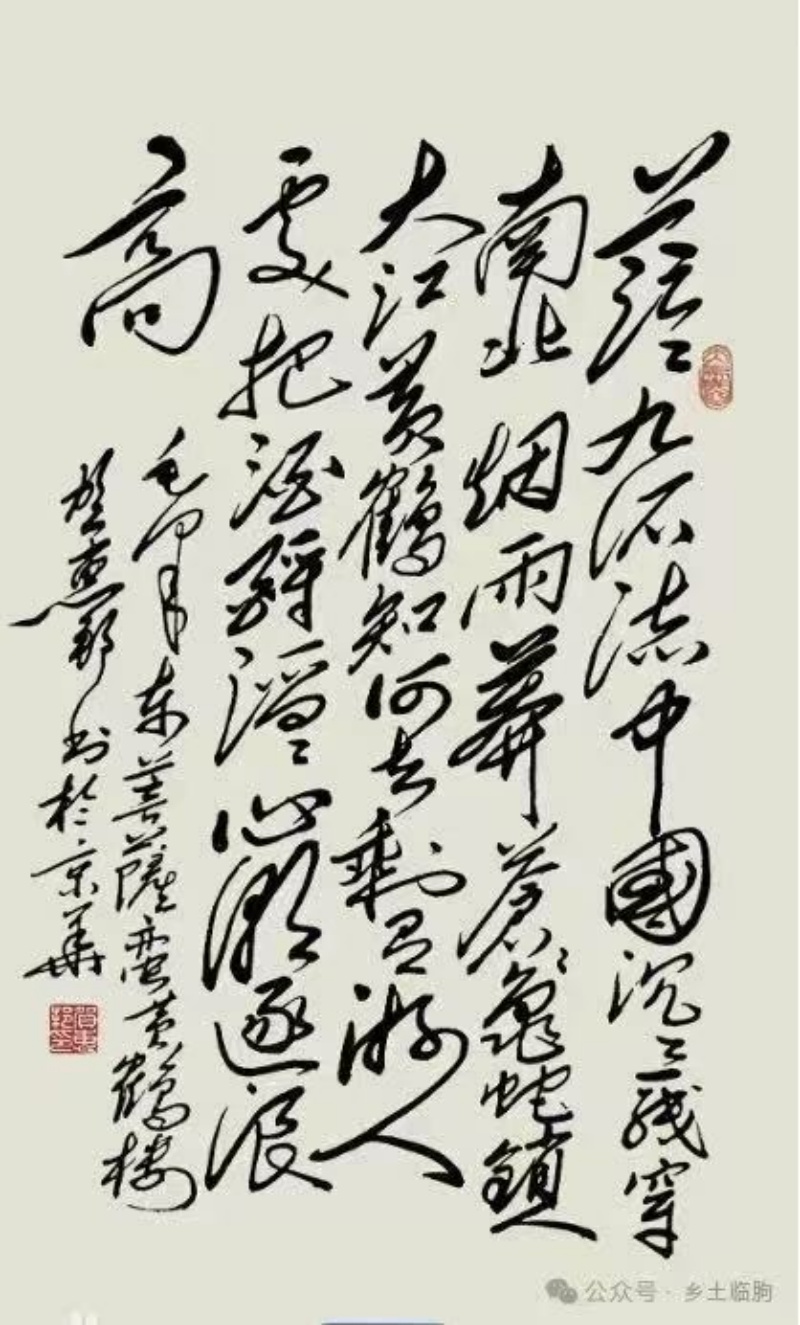 茫〻九派流中國沉〻一线穿
南北烟雨莽蒼〻龜蛇鎖
大江黄鶴知何去剩有游人
處把酒酹滔〻心潮逐浪
高
毛泽东菩薩蛮黄鶴楼
书於京華
公众号·乡土临朐